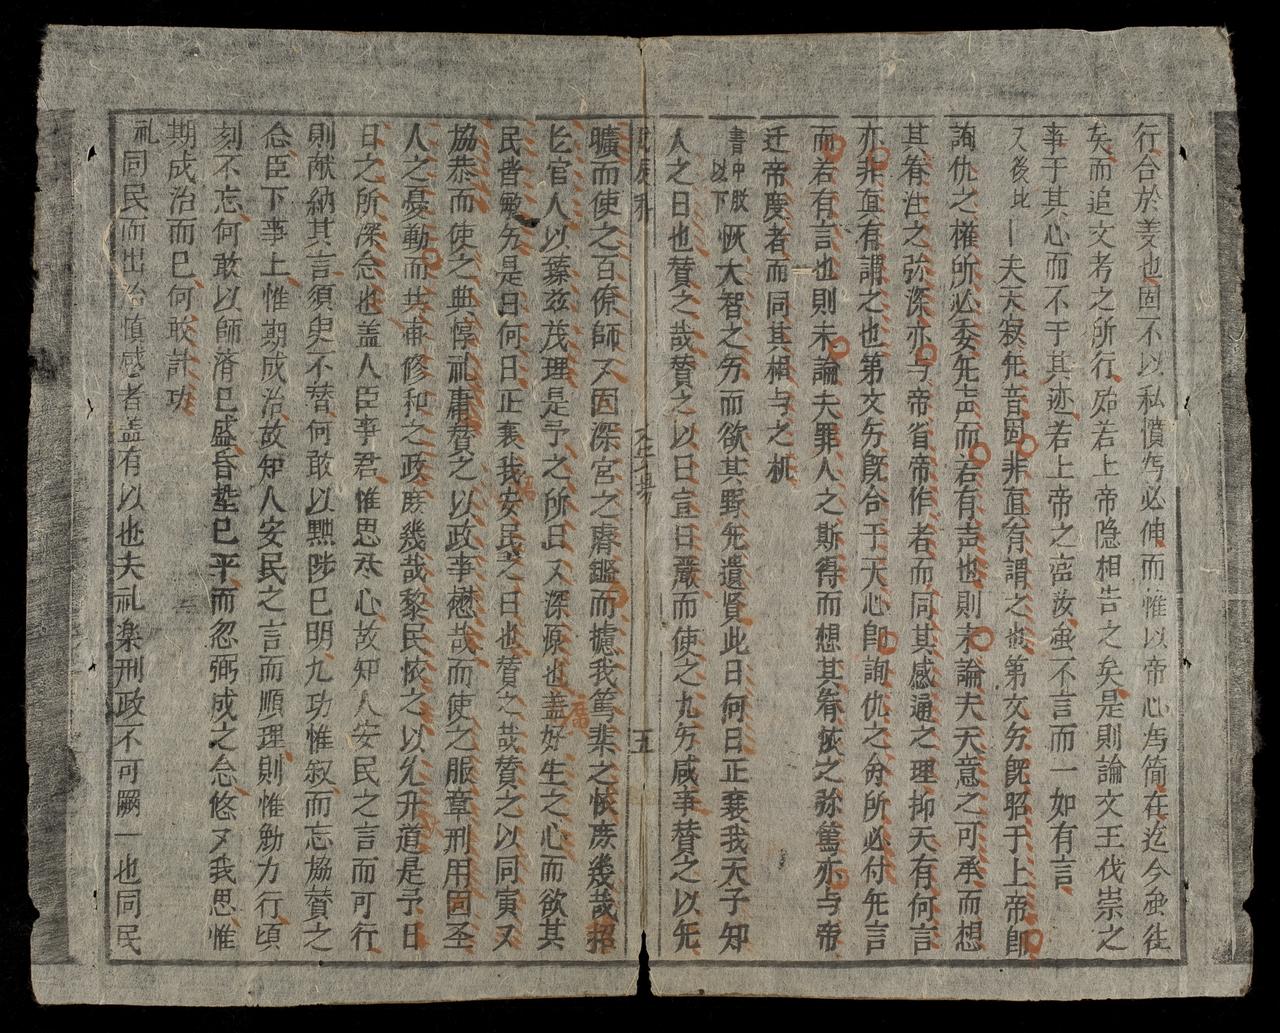 行合於姜也固不以私憤為必伸而惟以帝心為簡在迄今虽往
矣而追文考之所行始若上帝隐相告之矣是則論文王伐崇之
事于其心而不于其迹若上帝之密汝虽不言而一如有言
又後比
夫天寂旡音固非直有謂之也第文方既昭于上帝即
詢仇之權所必委旡声而若有声也則未論夫天意之可承而想
其眷注之弥深亦与帝省帝作者而同其感通之理抑天有何言
亦非真有謂之也第文方既合于天心即詢仇之命所必付旡言
而若有言也則未論夫罪人之斯得而想其眷怀之弥篤亦与帝
迁帝度者而同其相与之机
書中股
以下
恢大智之方而欲其野旡遺賢此日何日正襄我天子知
人之日也賛之哉賛之以日宣日嚴而使之九方咸事賛之以旡
五
曠而使之百僚師又因深宮之齋鑑而攄我篤棐之怀庶幾哉招
匕官人以臻玆茂理是予之所日又深原也盖好生之心而欲其
民皆敏方是日何日正襄我安民之日也賛之哉賛之以同寅又
協恭而使之典惇礼庸賛之以政事懋哉而使之服章刑用因圣
人之憂勤而共甫修和之政庶幾哉黎民怀之以允升道是予日
日之所深念也盖人臣事君惟思永心故知人安民之言而可行
則献納其言須臾不替何敢以黙陟已明九功惟叙而忘協賛之
念臣下事上惟期成治故知人安民之言而順理則惟勉力行頃
刻不忘何敢以師濟已盛昏墊已平而忽弼成之念悠又我思惟
期成治而已何敢計功
礼同民而出治慎感者盖有以也夫礼楽刑政不可闕一也同民